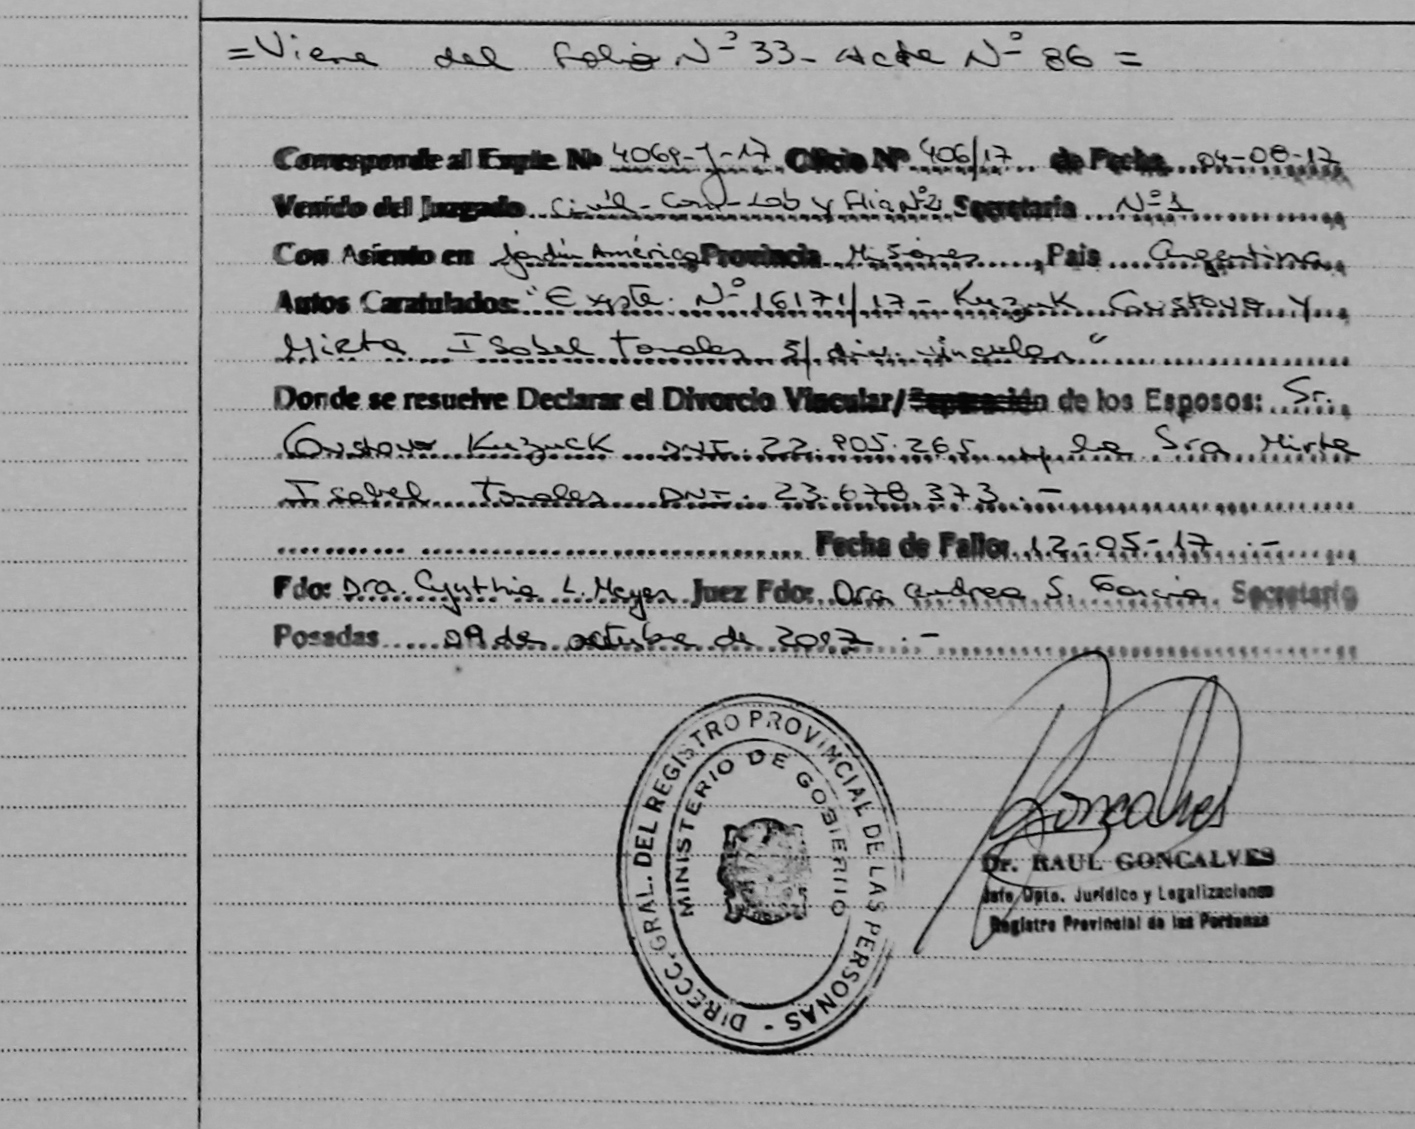 =Viene del Folio Nº 33- Acta Nº 86 =
Corresponde al Expte. Nº 4069-J-17 Oficio Nº 406/17 de Fecha 04-08-17
Venido del Juzgado Civil-Com-Lab y Flia Nº2 Secretaria Nº 1
Con Asiento en Jardín América Provincia Misiones, Pais Argentina
Autos Caratulados: "Expte. Nº 16171/17- Kuzuk Gustavo y
Mirta Isabel Tonales S/ div. vincular"
Donde se resuelve Declarar el Divorcio Vincular/Separación de los Esposos: Sr.
Gustavo Kuzuck DNI. 22.905.265 y la Sra Mirta
Isabel Tonales DNI. 23.678.373.-
Fecha de Fallo: 12-05-17.-
Fdo: Dra. Cynthia L. Meyer Juez Fdo: Dra Andrea S. Garcia Secretario
Posadas 09 de octubre de 2017.-
DIRECC. GRAL. DEL REGISTRO PROVINCIAL DE LAS PERSONAS -
MINISTERIO DE GOBIERNO
Goncalves
Dr. RAUL GONCALVES
Jefe Dpto. Jurídico y Legalizaciones
Registro Provincial de las Personas